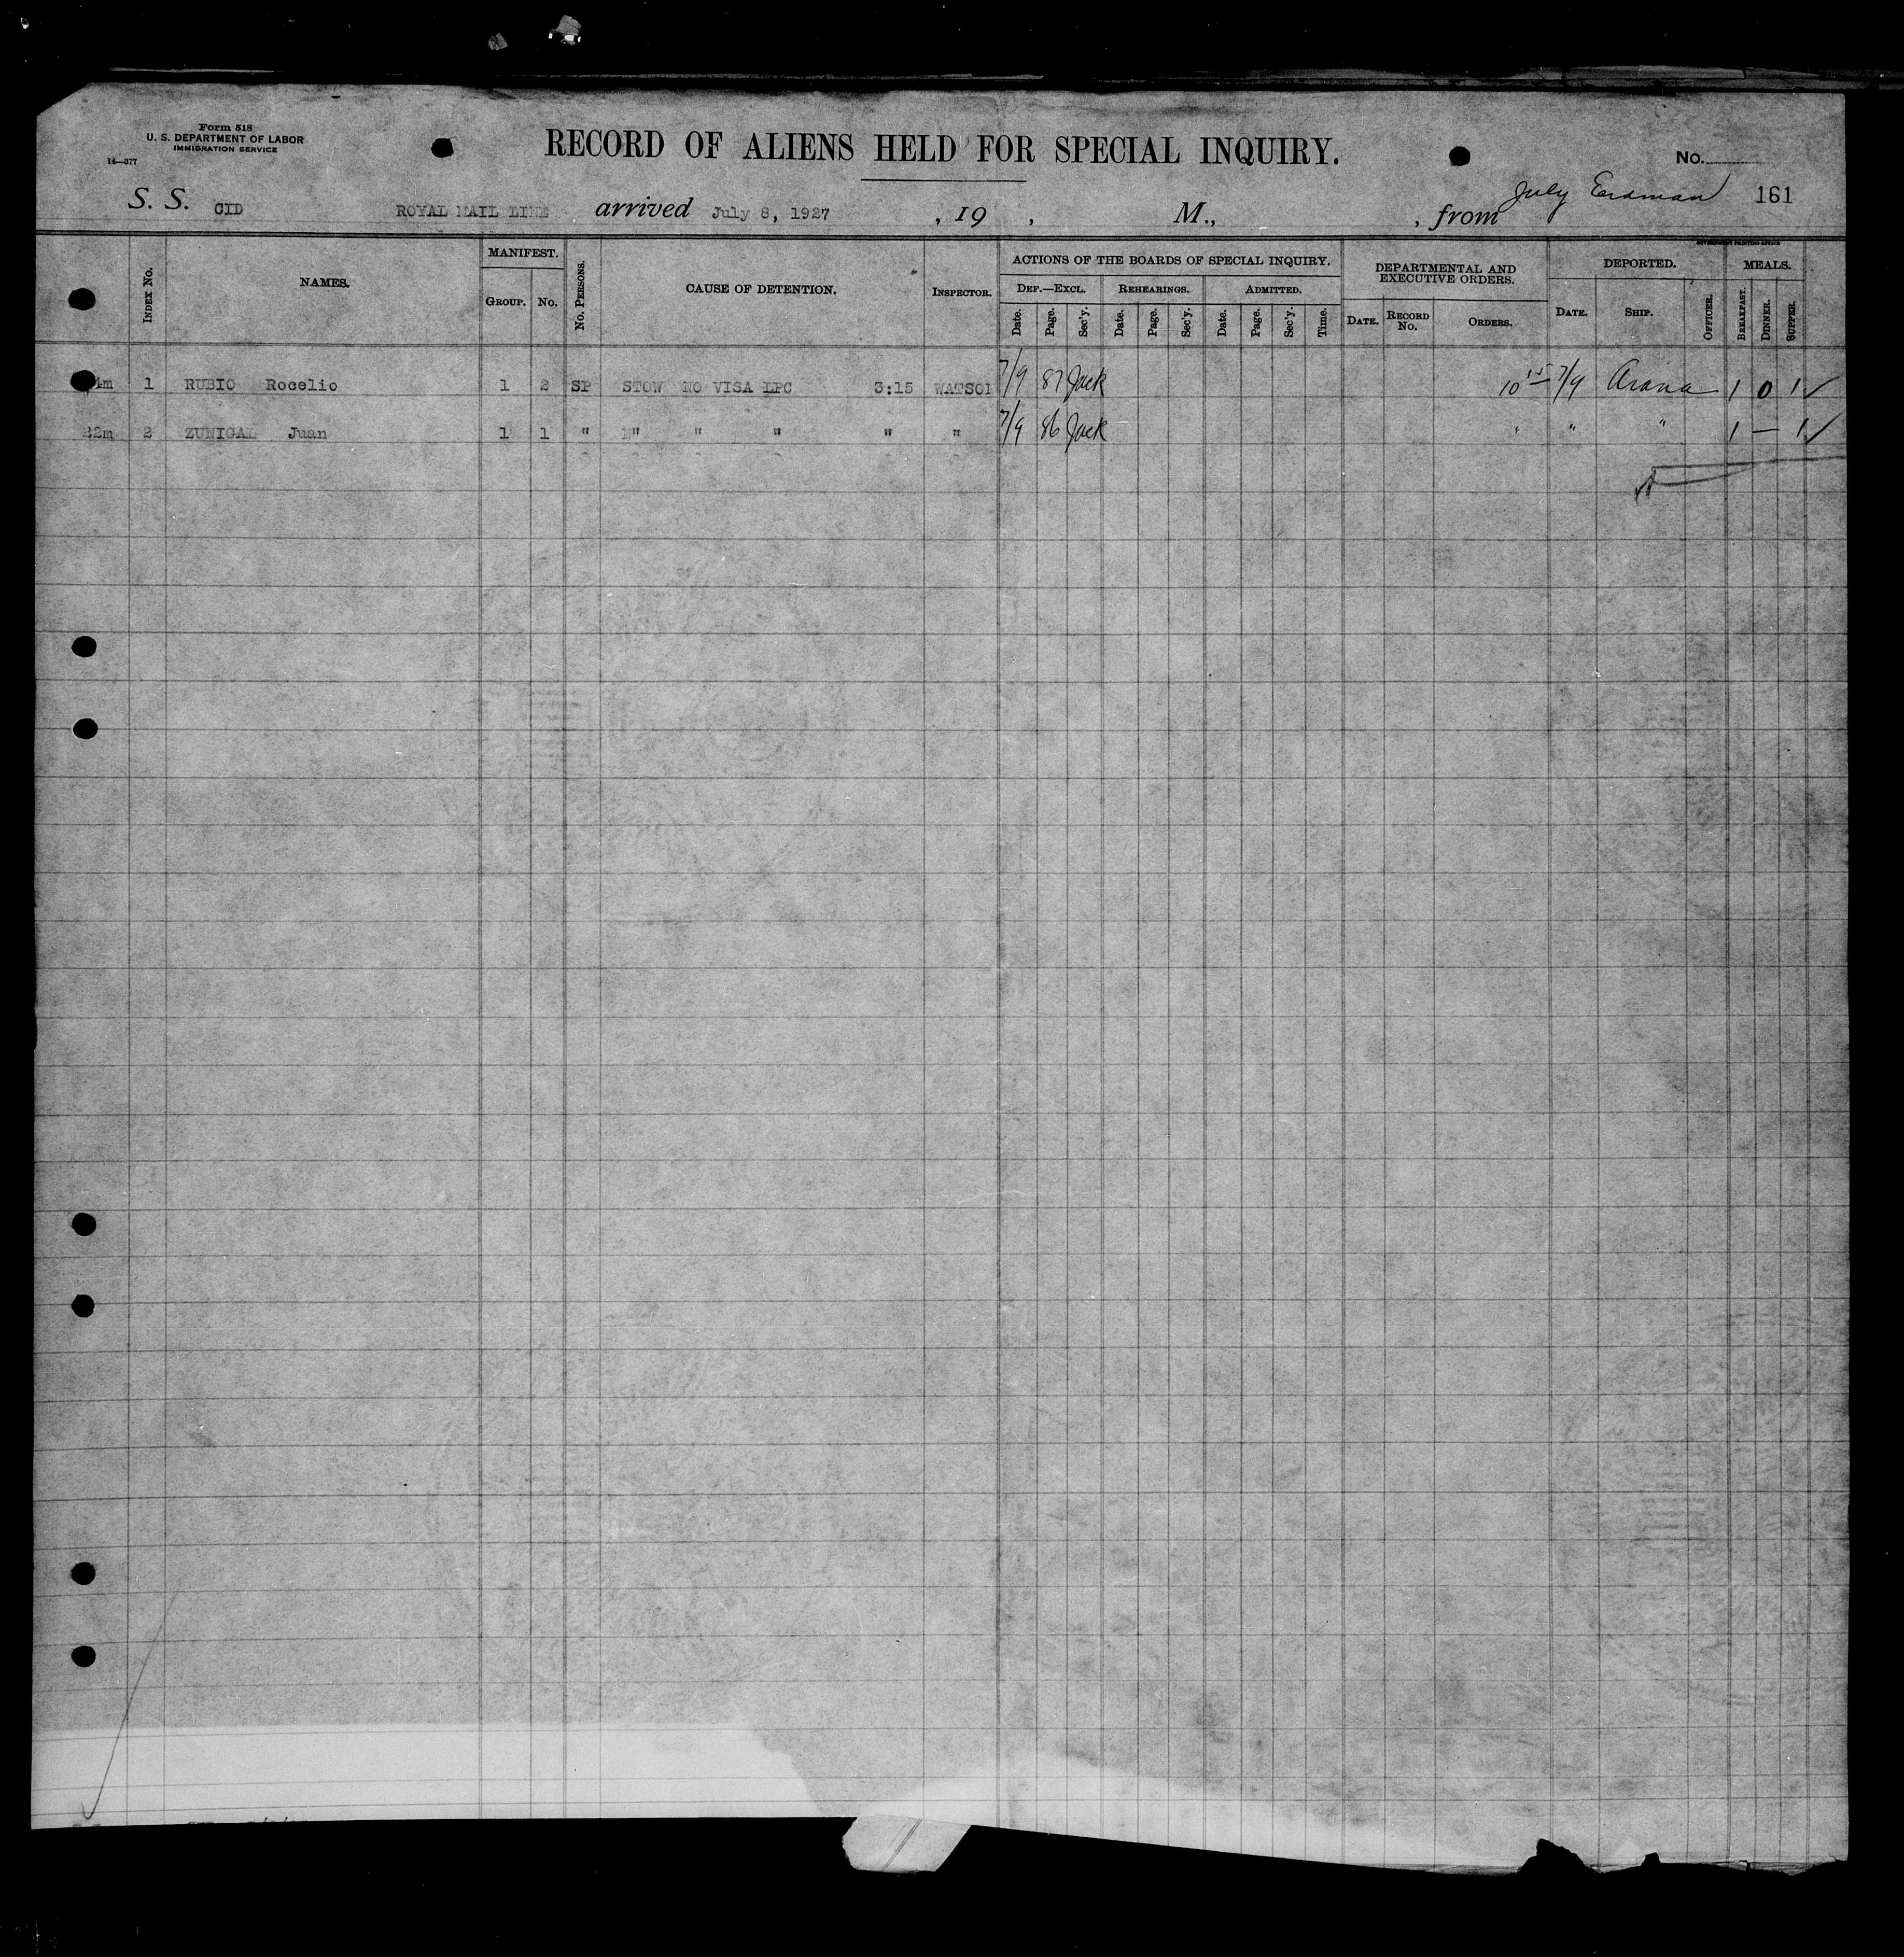 Form 518
U. S. DEPARTMENT OF LABOR
IMMIGRATION SERVICE
14—377
RECORD OF ALIENS HELD FOR SPECIAL INQUIRY.
No.
S. S. CID ROYAL MAIL LINE arrived July 8, 1927 , 19 , M., , from July Erdman 161
GOVERNMENT PRINTING OFFICE
INDEX No. NAMES. MANIFEST. GROUP. No. No. PERSONS. CAUSE OF DETENTION. INSPECTOR.
ACTIONS OF THE BOARDS OF SPECIAL INQUIRY.
DEF.—EXCL. REHEARINGS. ADMITTED.
Date. Page. Sec'y. Date. Page. Sec'y. Date. Page. Sec'y. Time.
DEPARTMENTAL AND EXECUTIVE ORDERS.
DATE. RECORD No. ORDERS.
DEPORTED.
DATE. SHIP. OFFICER.
MEALS.
BREAKFAST. DINNER. SUPPER.
4m 1 RUBIO Rogelio 1 2 SP STOW NO VISA LPC 3:15 WATSON 7/9 87 Jack 10 15 7/9 Arana 1 0 1 ✓
22m 2 ZUNIGAL Juan 1 1 " " " " " " 7/9 86 Jack " " " 1 — 1 ✓